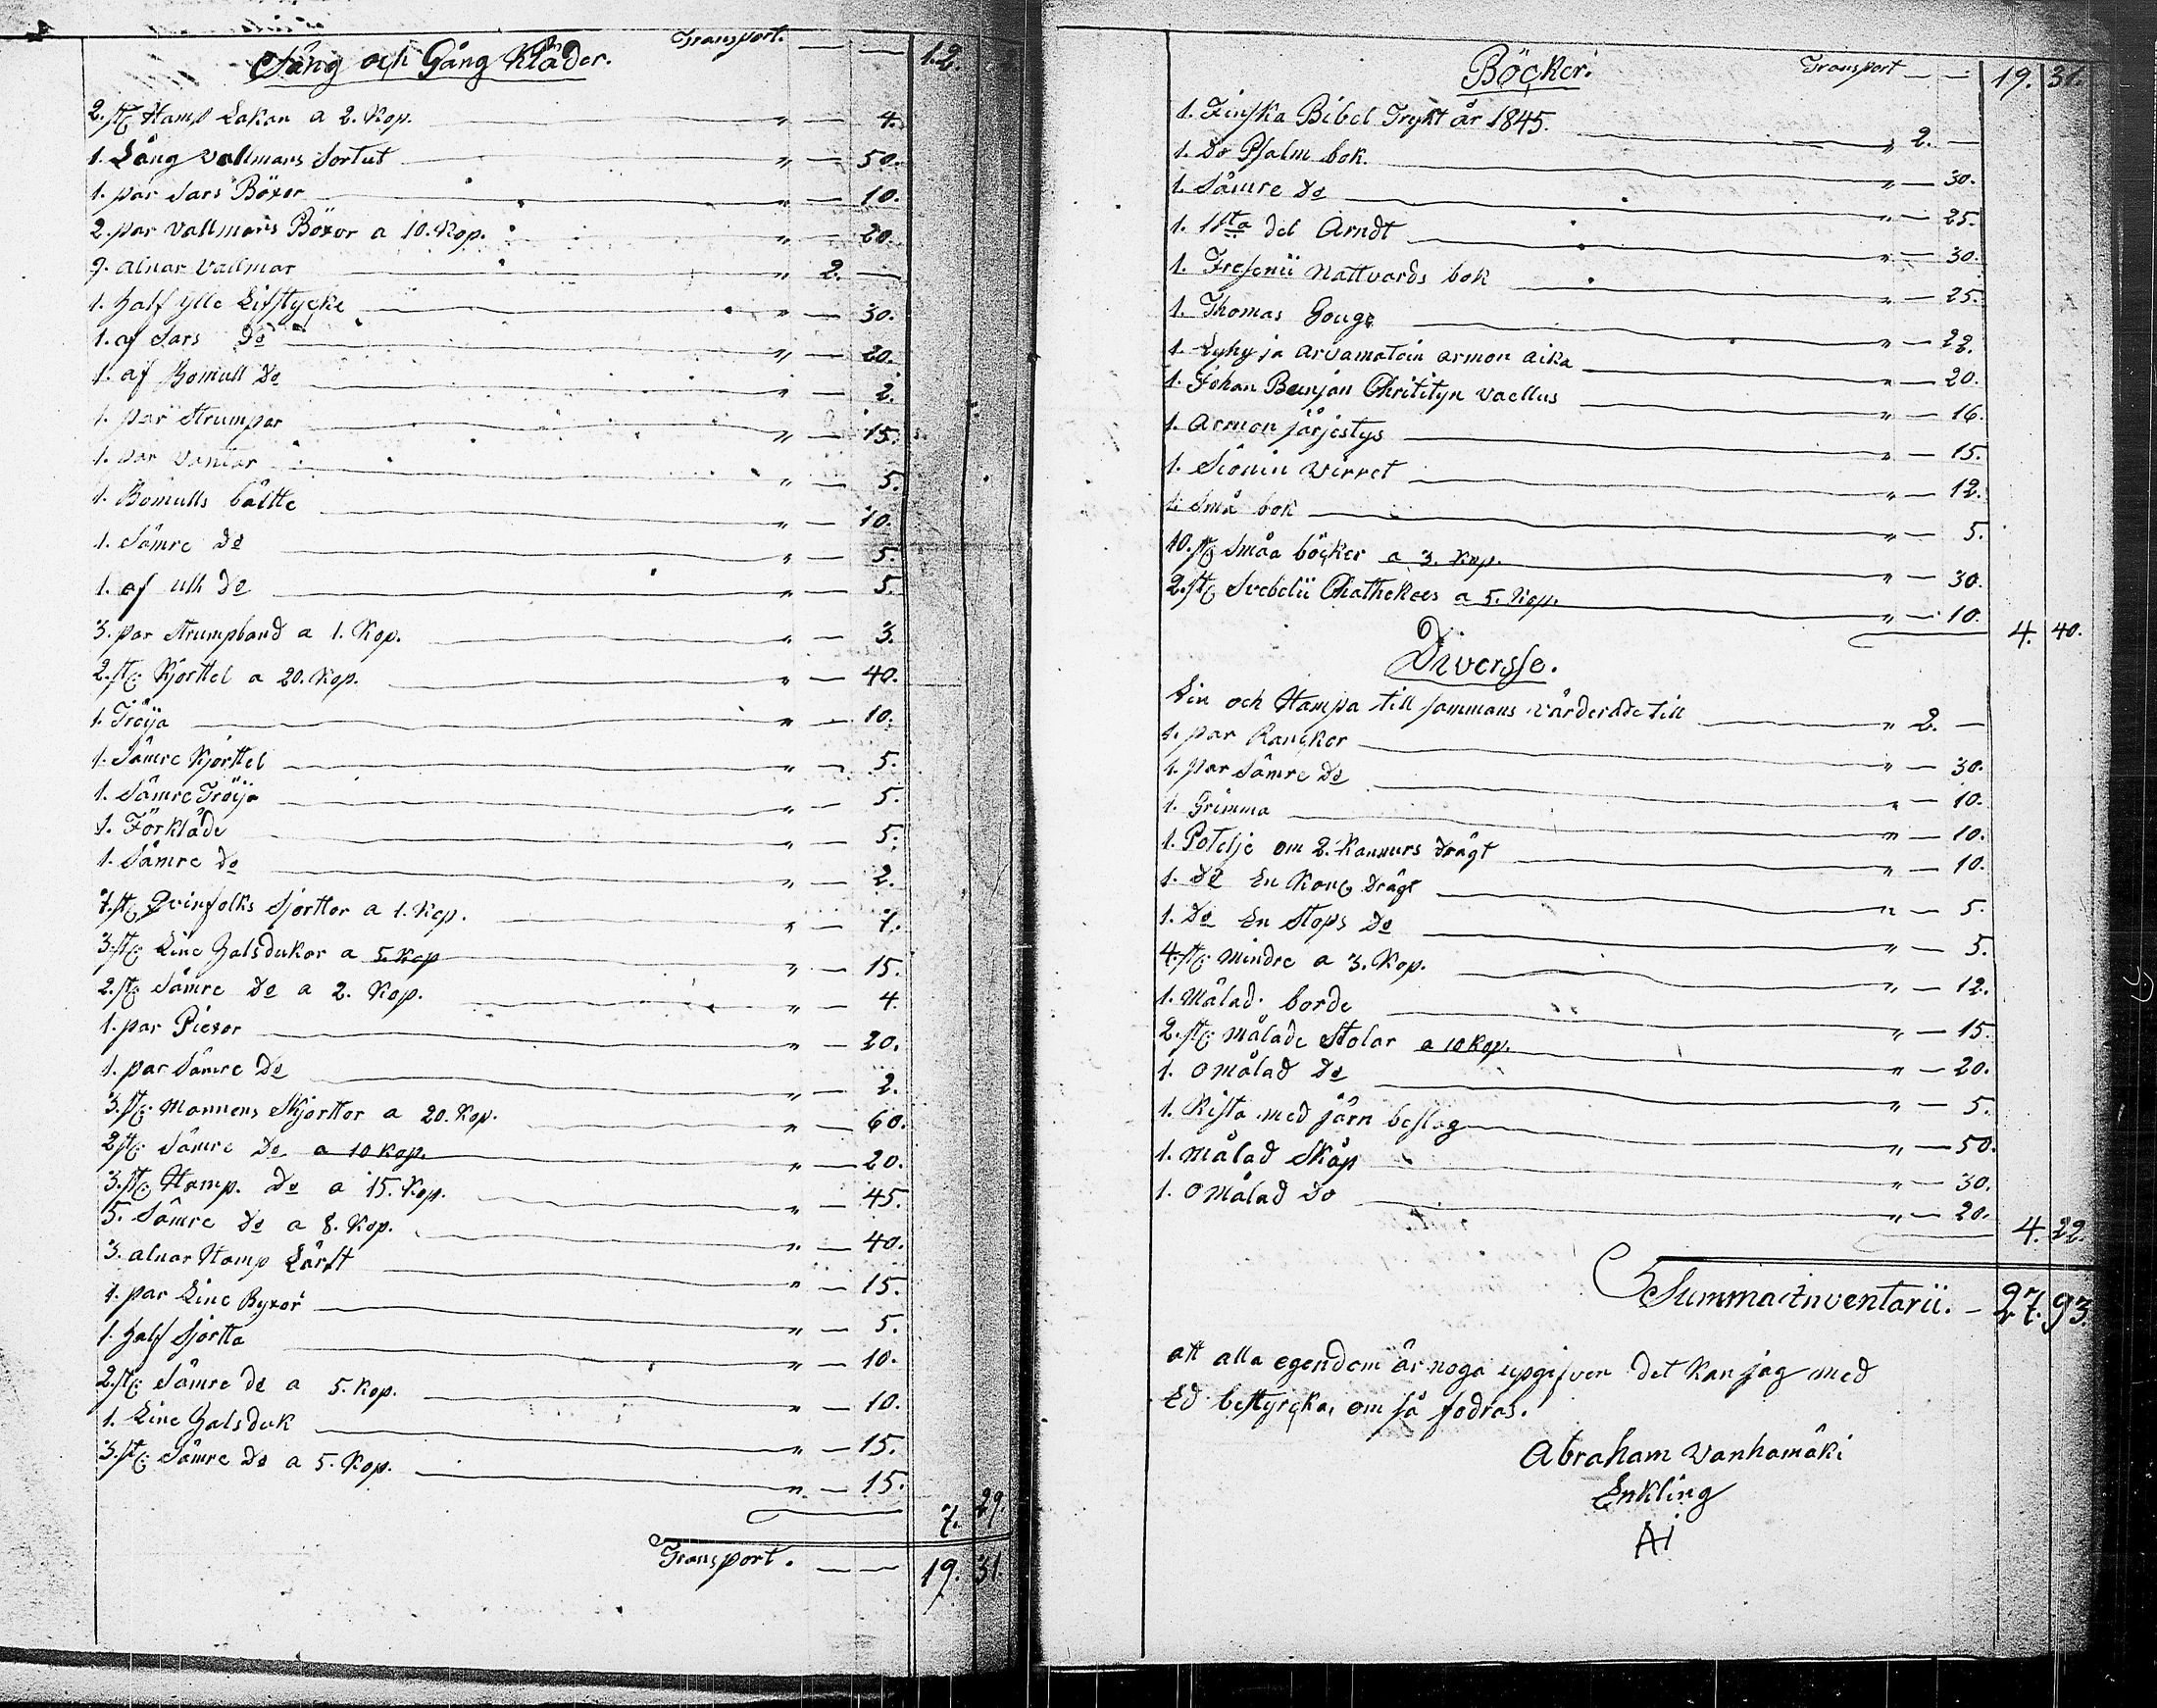 Säng och Gång Kläder. Transport. — — 12.
2. st: Hamp Lakan a 2. Kop. " — 4.
1. Lång vallmans Sortut " — 50.
1. par Sars Böxor " — 10.
2. par vallmans Böxor a 10. Kop. " — 20.
9. alnar Vallmar " 2. —
1. half ylle Lifstycke " — 30.
1. af Sars Do " — 20.
1. af Bomull Do — 2.
1. par Strumpor " — 15.
1. par Vantar " — 5.
1. Bomulls bältte " — 10.
1. Sämre Do " — 5.
1. af ull Do " — 5.
3. par Strumpband a 1. Kop. " — 3.
2. st: Kjorttel a 20. Kop. " — 40.
1. Tröija " — 10.
1. Sämre Kjorttel " — 5.
1. Sämre Tröija " — 5.
1. Förkläde " — 5.
1. Sämre Do " — 2.
7. st: Qvinfolks Sjorttor a 1. Kop. " — 7.
3. st: Line Halsdukor a 5. Kop " — 15.
2. st: Sämre Do a 2. Kop. " — 4.
1. par Piexor " — 20.
1. par Sämre Do " — 2.
3. st: Mannens Skjorttor a 20. Kop. " — 60.
2 st: Sämre Do a 10 Kop. " — 20.
3. st: Hamp. Do a 15. Kop. " — 45.
5. Sämre Do a 8. Kop. " — 40.
3. alnar Hamp Lärft " — 15.
1. par Line Byxor " — 5.
1. half Sjortta " — 10.
2. st: Sämre do a 5. Kop. " — 10.
1. Line Halsduk " — 15.
3. st: Sämre Do a 5. Kop. " — 15.
7. 29.
Transport. — — 19. 31.
Böcker. Transport — — 19. 31.
1. Finska Bibel Trykt år 1845. " 2. —
1. Do Psalm bok. " — 30.
1. Sämre Do " — 25.
1. 1sta del Arndt " — 30.
1. Fresenii Nattvards bok " — 25.
1. Thomas Gouge " — 22.
1. Lyhy ja arvamatoin armon aika " — 20.
1. Johan Bunjan Chritityn vaellus " — 16.
1. Armon järjestys " — 15.
1. Sionin Virret " — 12.
1. Små bok " — 5.
10. st: Småa böcker a 3. Kop. " — 30.
2. st: Svebelii Chathekees a 5. Kop. " — 10.
4. 40.
Diversse.
Lin och Hampa till sammans värderade till " 2. —
1. par Rancker " — 30.
1. par Sämre Do " — 10.
1. Grimma " — 10.
1. Potelje om 2. Kannurs drägt " — 10.
1. Do En Kan: drägt " — 5.
1. Do En Stops Do " — 5.
4. st: mindre a 3. Kop. " — 12.
1. Målad borde " — 15.
2. st: målade Stolar a 10 Kop. " — 20.
1. Omålad Do " — 5.
1. Kista med järn beslag " — 50.
1. Målad Skåp " — 30.
1. Omålad Do " — 20.
4. 22.
Summa Inventarii. — 27. 93.
att alla egendom är noga upgifven det kan jag med
Ed bestyrcka, om så fodras.
Abraham Vanhamäki
Enkling
AI